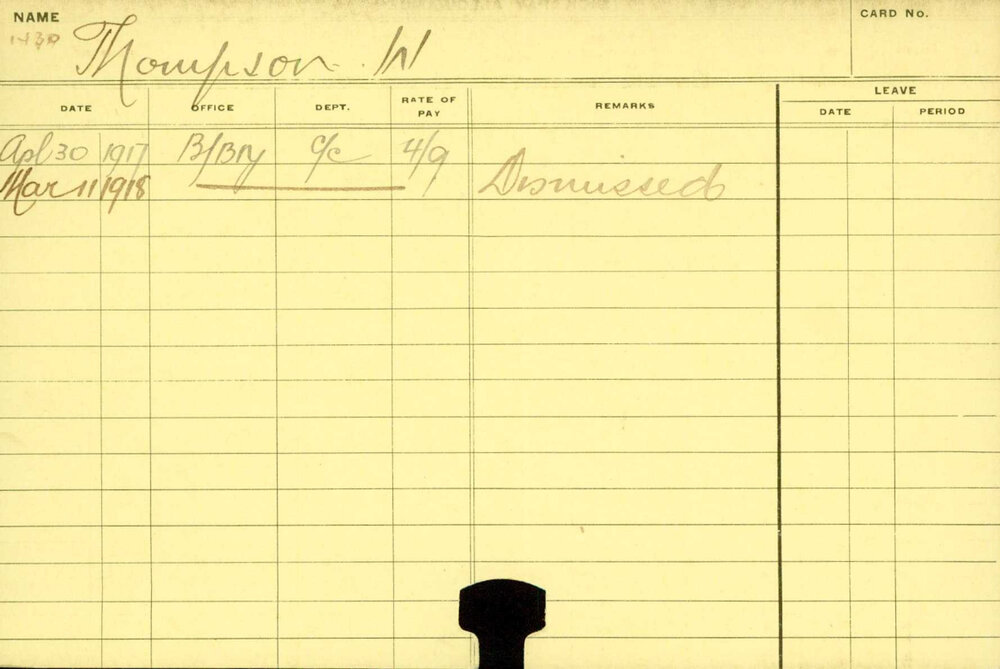 NAME
CARD No.
1430
Thompson. W
DATE OFFICE DEPT. RATE OF PAY REMARKS LEAVE
DATE PERIOD
Apl 30 1917 B/Bry C/C 4/9
Mar 11 1918 Dismissed